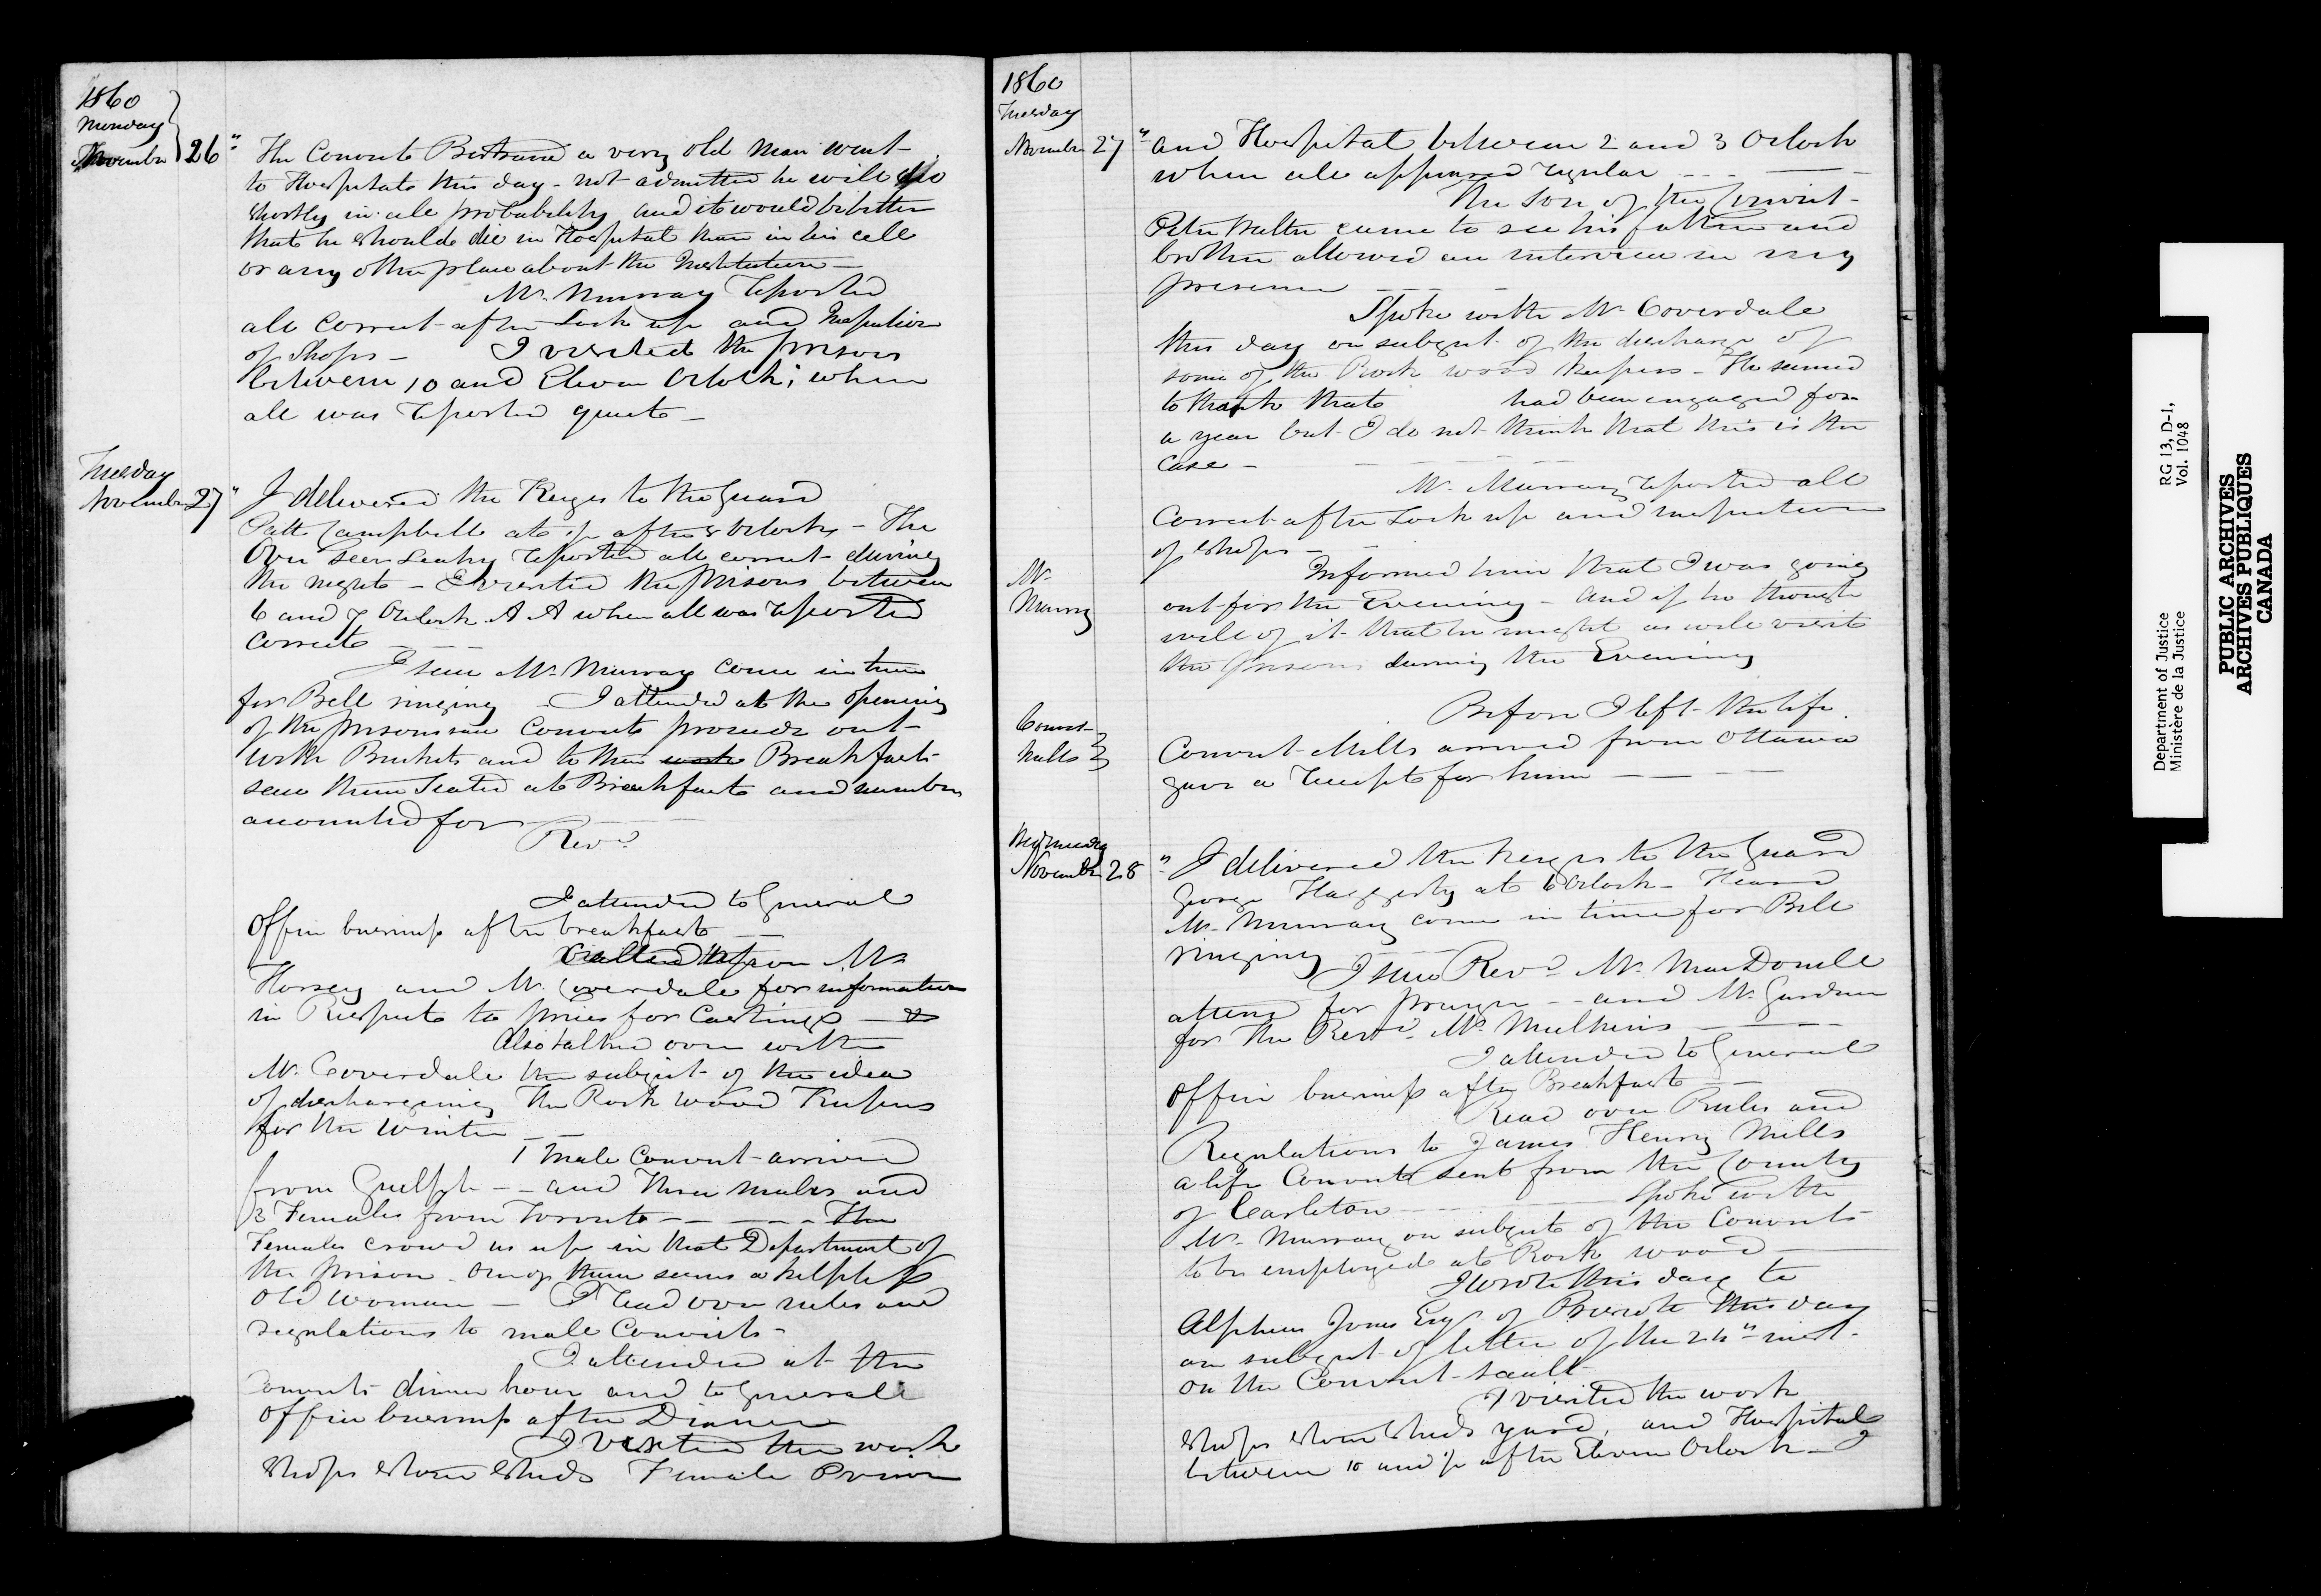 1860
Monday
November 26"
The Convict Bertrand a very old man went
to Hospital this day - not admitted he will die
shortly in all probability and it would be better
that he should die in Hospital than in his cell
or any other place about the Institution -
Mr. Murray reported
all correct after Lock up and Inspection
of Shops - I visited the prison
between 10 and Eleven Oclock; when
all was reported quiet -
Tuesday
November 27"
I delivered the Keyes to the Guard
Patk Campbell at after Oclock - The
Over seer Leahy reported all correct during
the night - I visited the prisons between
6 and 7 Oclock A A when all was reported
correct
I saw Mr. Murray come in time
for Bell ringing - I attended at the opening
of the prison saw Convicts proceed out
with Buckets and to their work Breakfast
saw them Seated at Breakfast and numbers
accounted for
Revd
I attended to General
Office business after breakfast
Called upon Mr
Horsey and Mr. Coverdale for information
in Respect to prices for Castings -
Also talked over with
Mr. Coverdale the subject of the idea
of discharging The Rock wood Keepers
for the Winter
1 Male Convict arrived
from Guelph - - and Three males and
3 Females from Toronto - - The
Females crowd us up in that Department of
the prison. One of them seems a helpless
old woman - I read over rules and
regulations to male Convicts -
I attended at the
Convicts dinner hour and to General
Office business after Dinner
I visited the work
Shops Stone Sheds Female Prison
1860
Tuesday
November 27"
and Hospital between 2 and 3 Oclock
when all appeared regular
The son of the Convict
Peter Walter came to see his father and
brother allowed an interview in my
presence
Spoke with Mr Coverdale
this day on subject of the discharge of
some of the Rock wood keepers - He seemed
to think that had been engaged for
a year but I do not think that this is the
case -
Mr. Murray reported all
Correct after Lock up and inspection
of shops -
Mr.
Murray
Informed him that I was going
out for the Evening - and if he thought
well of it that he might as well visit
the prisons during the Evening
Convict
Mills
Before I left the life
Convict Mills arrived from Ottawa
gave a receipt for him
Wednesday
November 28"
I delivered the keyes to the Guard
George Haggerty at 6 Oclock - Heard
Mr. Murray come in time for Bell
ringing
I saw Revd Mr. MacDonell
attend for prayer - - and Mr. Gardner
for the Revd. Mr Mulkins
I attended to General
Office business after Breakfast
Read over Rules and
Regulations to James Henry Mills
a life Convict sent from the County
of Carleton Spoke with
Mr. Murray on subject of the Convicts
to be employed at Rock wood
I wrote this day to
Alpheus Jones Esqr. of Prescott this day
on subject of letter of the 24" inst.
on the Convict
I visited the work
shops stone sheds yard, and Hospital
between 10 and after Eleven Oclock - I
Department of Justice
Ministère de la Justice
RG 13, D-1,
Vol. 1048
PUBLIC ARCHIVES
ARCHIVES PUBLIQUES
CANADA